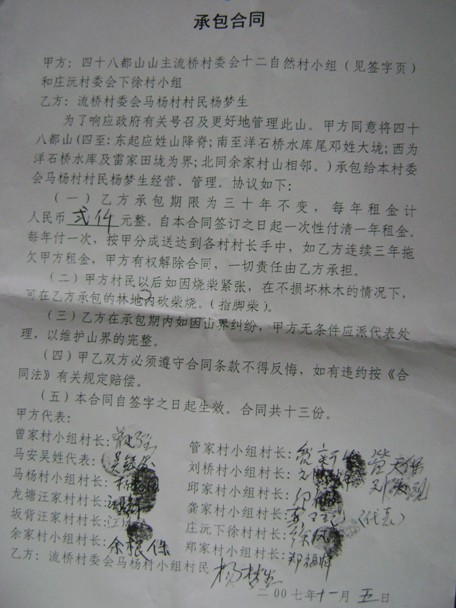 承包合同
甲方：四十八都山山主流桥村委会十二自然村小组（见签字页）
和庄沅村委会下徐村小组
乙方：流桥村委会马杨村村民杨梦生
为了响应政府有关号召及更好地管理此山。甲方同意将四十
八都山(四至:东起应姓山降脊;南至洋石桥水库尾邓姓大垅;西为
洋石桥水库及雷家田垅为界;北同余家村山相邻。)承包给本村委
会马杨村村民杨梦生经营、管理。协议如下:
(一)乙方承包期限为三十年不变，每年租金计
人民币 弍仟 元整。自本合同签订之日起一次性付清一年租金.
每年付一次，按甲分成送达到各村村长手中，如乙方连续三年拖
欠甲方租金，甲方有权解除合同，一切责任由乙方承担。
(二)甲方村民以后如因烧柴紧张，在不损坏林木的情况下，
可在乙方承包的林地内砍柴烧。(指脚柴)。
(三)乙方在承包期内如因山界纠纷，甲方无条件应派代表处
理，以维护山界的完整。
(四)甲乙双方必须遵守合同条款不得反悔，如有违约按《合
同法》有关规定赔偿。
(五)本合同自签字之日起生效。合同共十三份。
甲方代表：
曾家村小组村长:
管家村小组村长:
马安吴姓代表:
刘桥村小组村长:
马杨村小组村长:
邱家村小组村长:
龙塘汪家村村长:
龚家村小组村长: (代表)
坂背汪家村村长:
庄沅下徐村村长:
余家村小组村长: 余根保
郑家村小组村长: 郑祖辉
乙方：流桥村委会马杨村小组村民 杨梦生
二00七年十一月五日